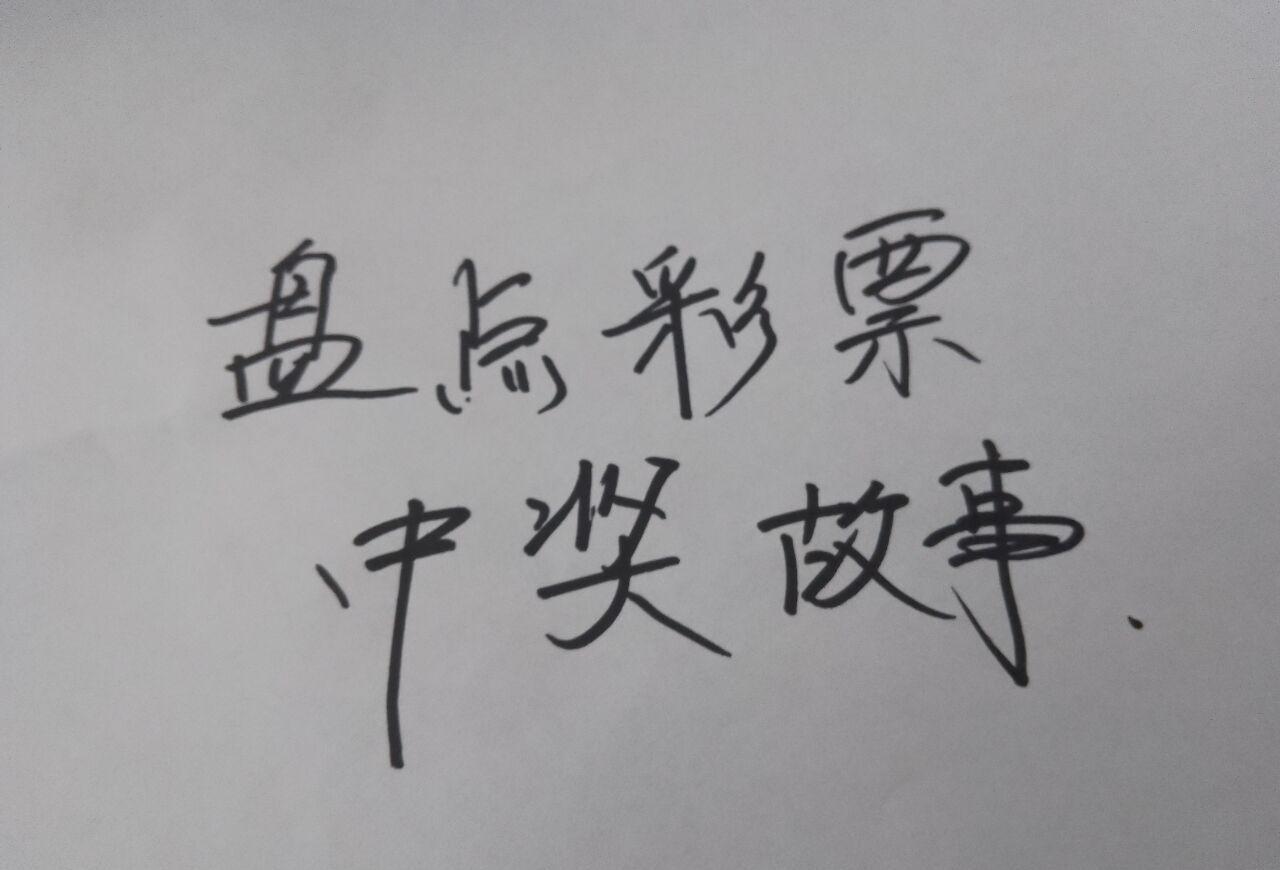 盘点彩票
中奖故事.